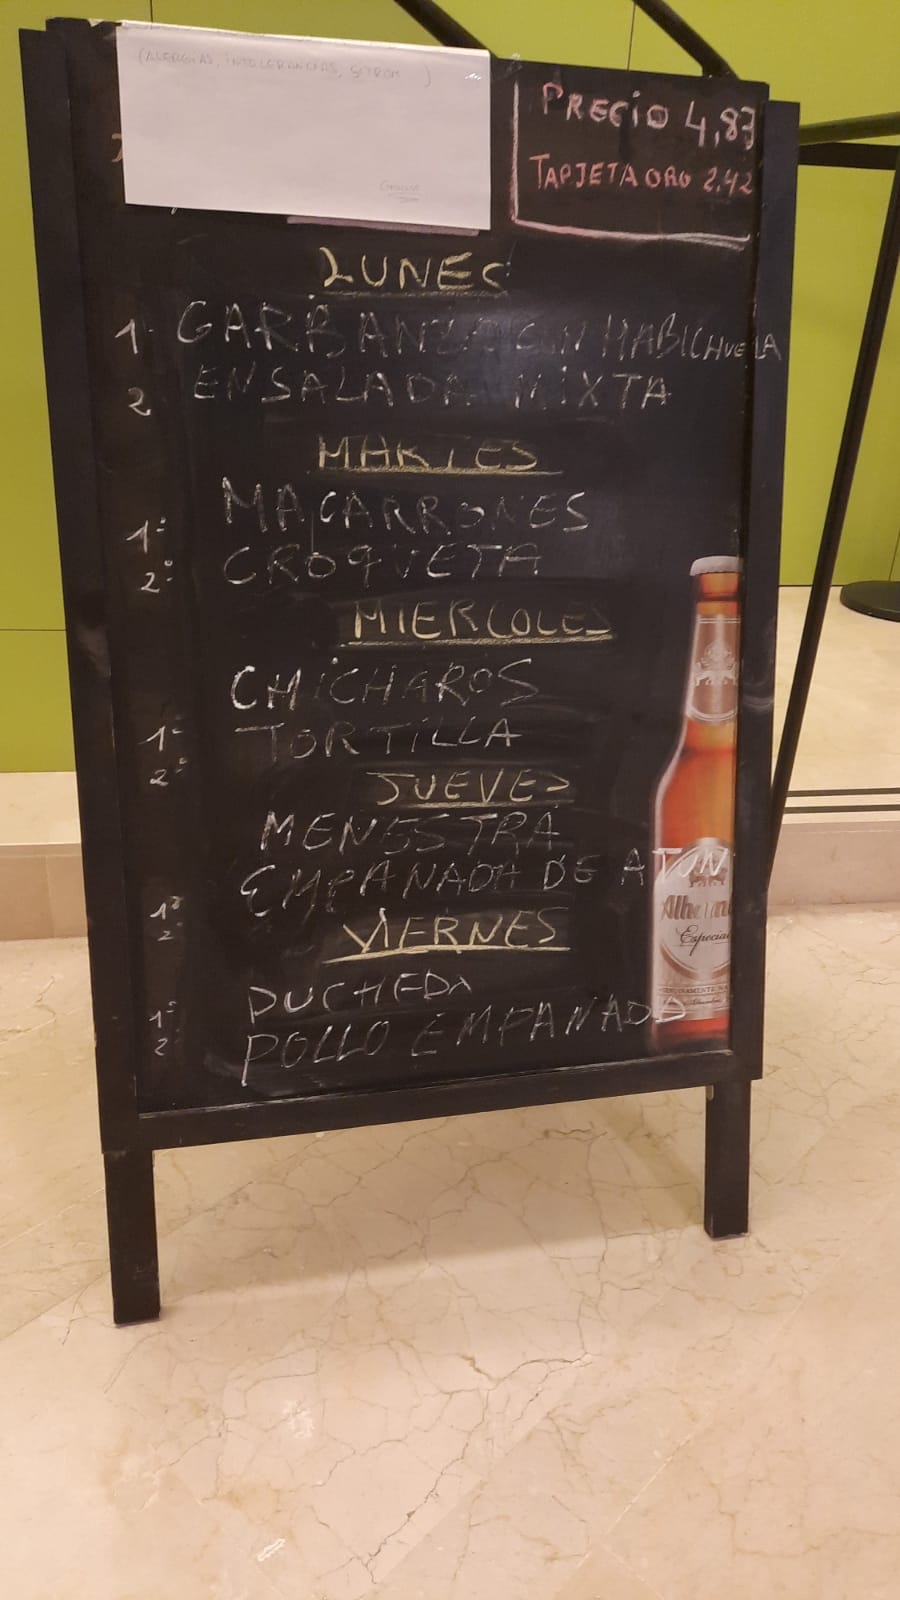 (ALERGIAS, INTOLERANCIAS, SITROM )
GRACIAS
PRECIO 4,83
TARJETA ORO 2,42
LUNES
1- GARBANZO CON HABICHUELA
2 ENSALADA MIXTA
MARTES
1º MACARRONES
2º CROQUETA
MIERCOLES
1º CHICHAROS
2º TORTILLA
JUEVES
1º MENESTRA
2º EMPANADA DE ATUN
VIERNES
1º PUCHERO
2º POLLO EMPANADO
Especial